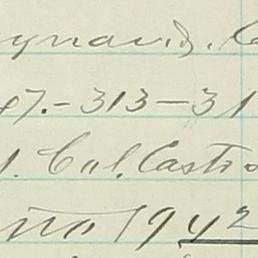 ynaud. C
97.-313-31
1. Cal. Castro
no 1942